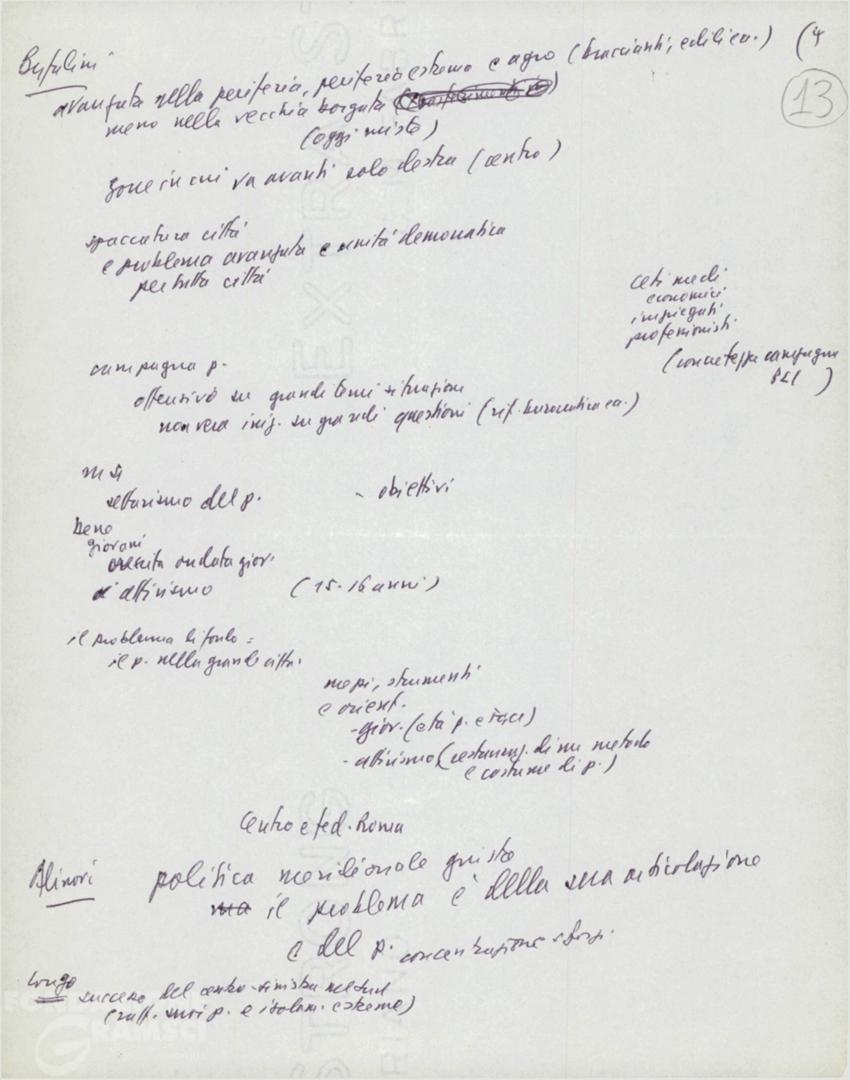 Bufalini
(4
13
avanzata nella periferia, periferia estrema e agro (braccianti, edili ca.)
meno nella vecchia borgata
(oggi mista)
zone in cui va avanti solo destra (centro)
spaccatura città
e problema avanzata e unità democratica
per tutta città
ceti medi
economici
impiegati
professionisti
(concretezza campagna
campagna p.
offensivo su grandi temi situazione
non vera iniz. su grandi questioni (rif. burocratica ca.)
msi
settarismo del p. - obiettivi
bene
giovani
crescita ondata giov.
attivismo (15-16 anni)
il problema di fondo =
il p. nella grande città.
mezzi, strumenti
e orient.
- giov. (età p. e
- attivismo ( di un metodo
e costume di p.)
Centro e fed. Roma
Alinovi politica meridionale giusta
ma il problema è della sua articolazione
e del p. concentrazione sforzi.
Longo successo del centro-sinistra nel sud
(raff. suoi p. e isolam. estreme)
FONDAZIONE
GRAMSCI
EX-TRA S
STRONG